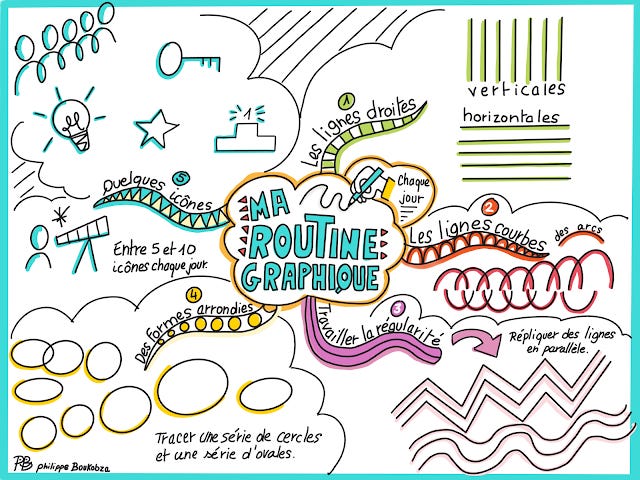 MA
ROUTINE
GRAPHIQUE
Chaque
jour
1
Les lignes droites
verticales
horizontales
2
Les lignes courbes
des arcs
3
Travailler la régularité
Répliquer des lignes
en parallèle.
4
Des formes arrondies
Tracer une série de cercles
et une série d'ovales.
5
Quelques icônes
1
Entre 5 et 10
icônes chaque jour.
PB philippe Boukobza